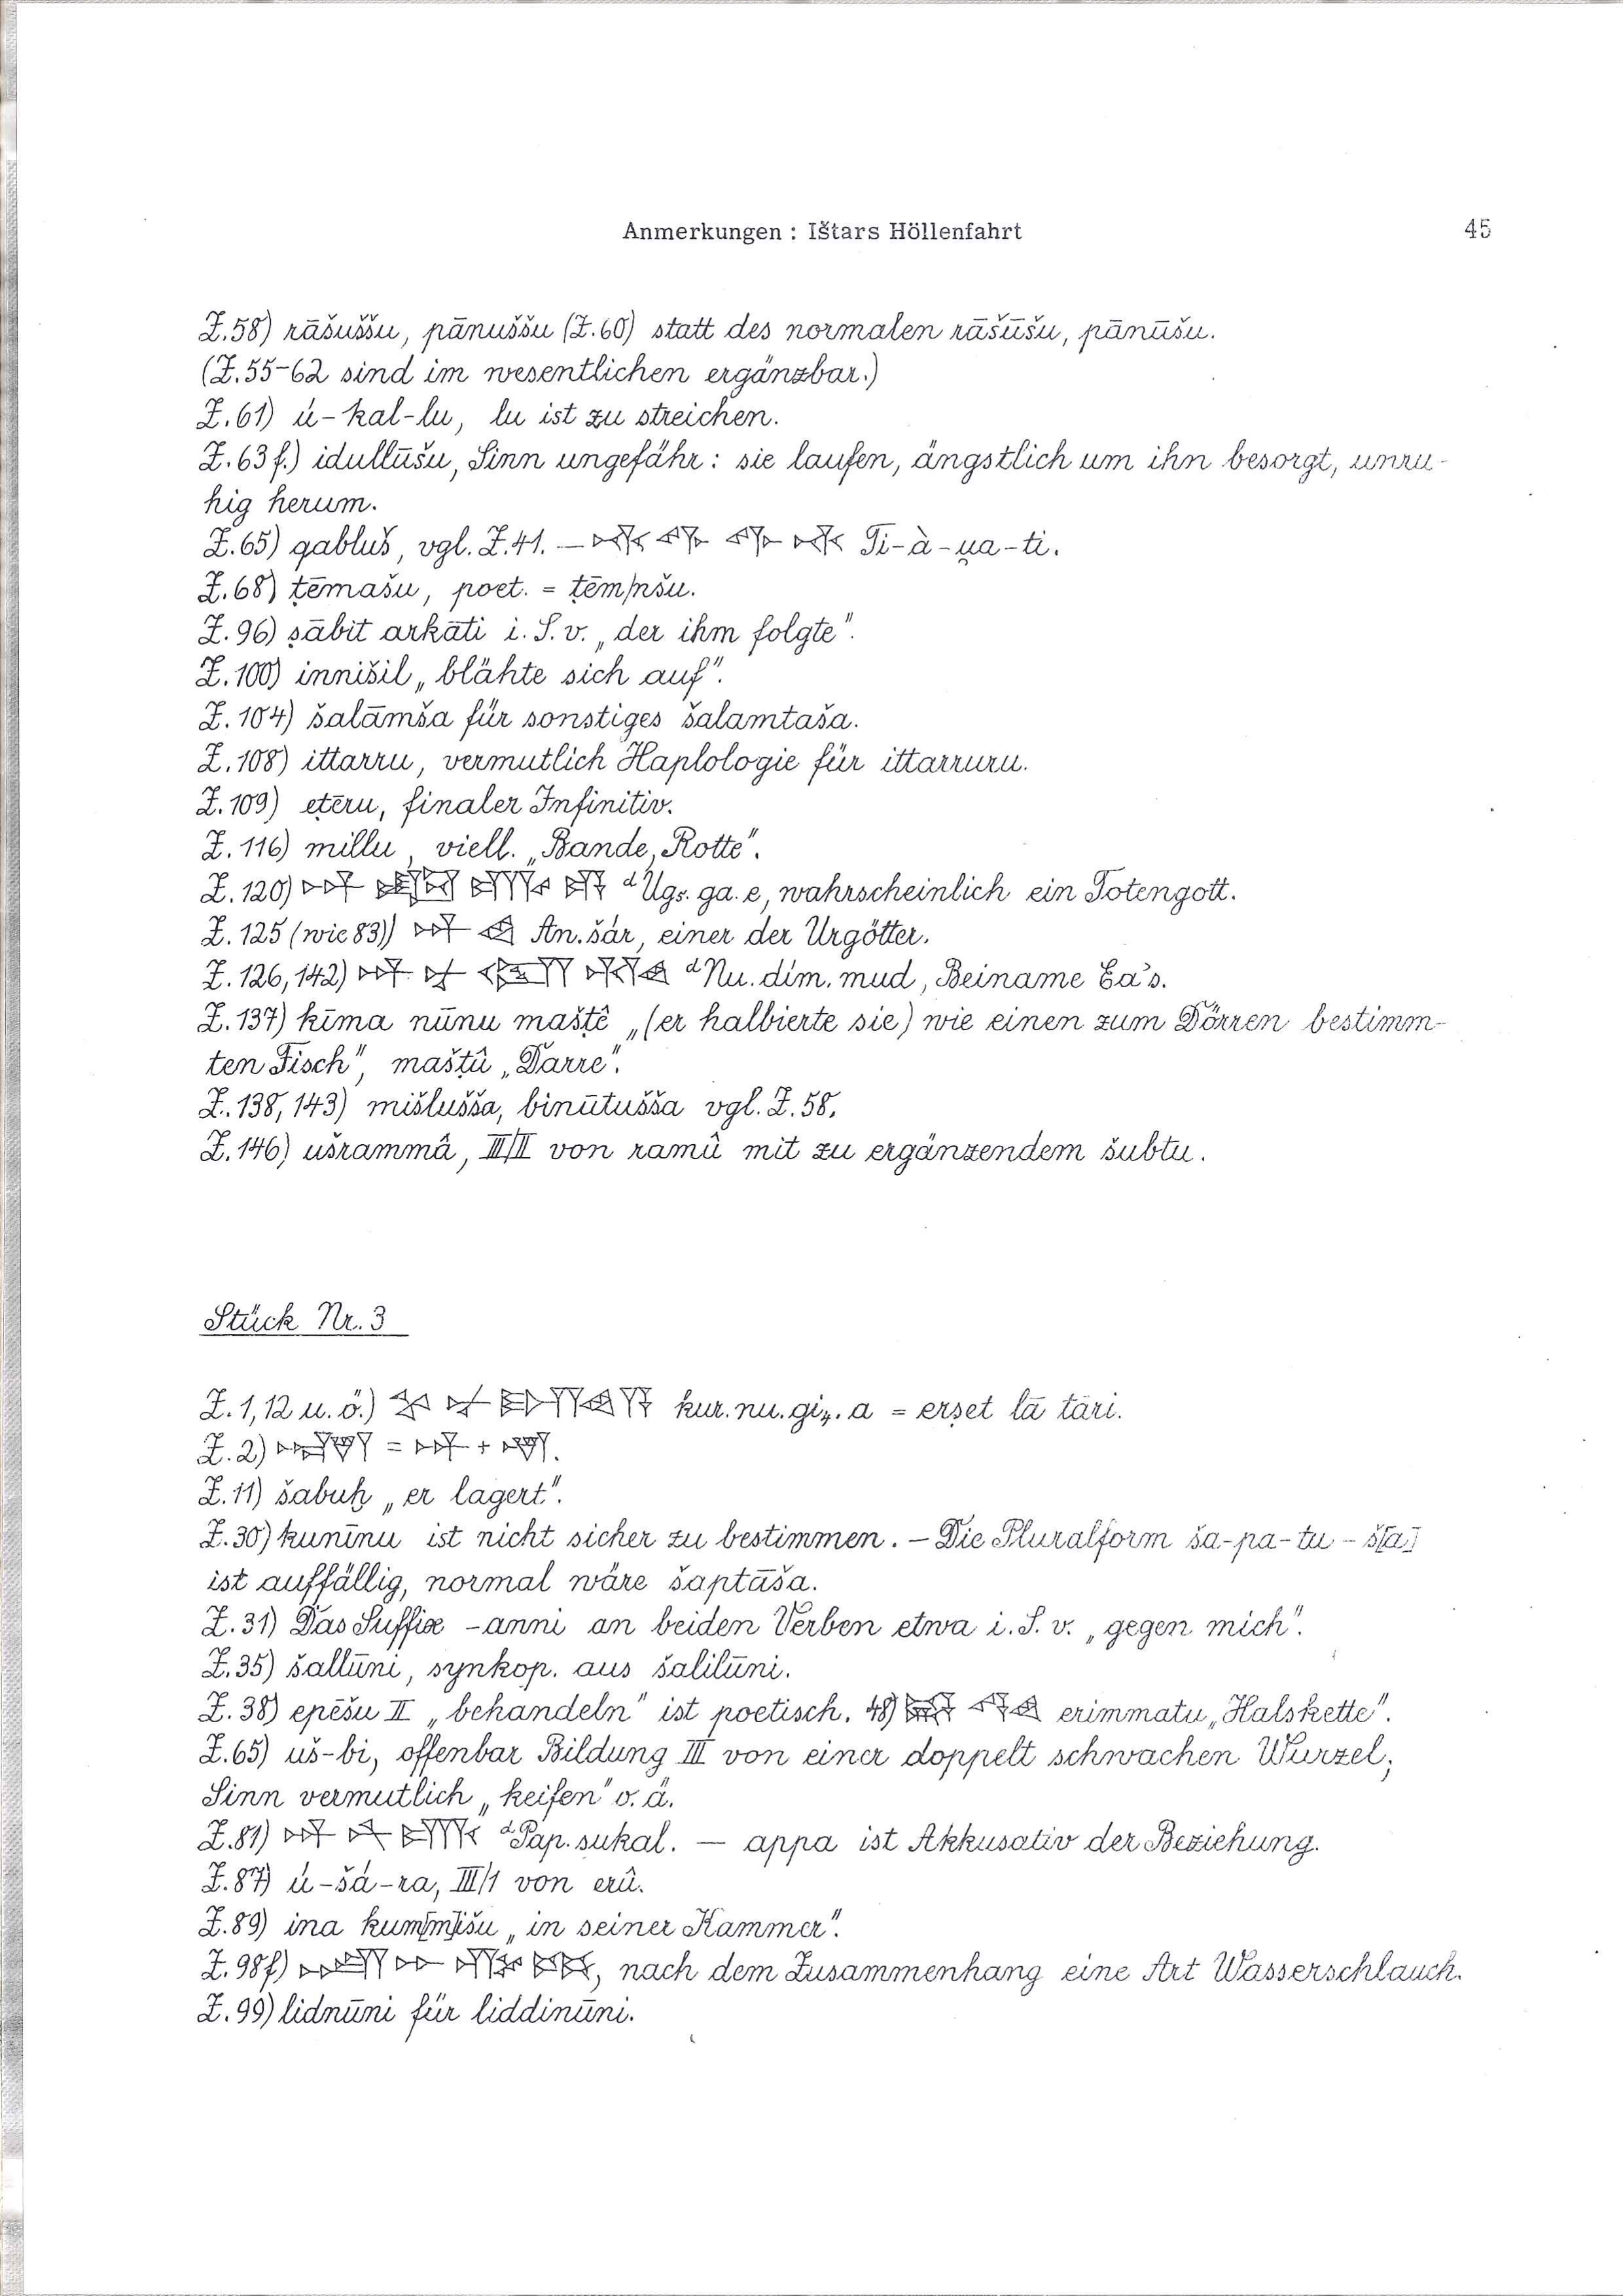 Anmerkungen : Ištars Höllenfahrt 45
Z.58) rāšuššu, pānuššu (Z.60) statt des normalen rāšūšu, pānūšu.
(Z.55-62 sind im wesentlichen ergänzbar.)
Z.61) ú-kal-lu, lu ist zu streichen.
Z.63 f.) idullūšu, Sinn ungefähr: sie laufen, ängstlich um ihn besorgt, unru-
hig herum.
Z.65) qabluš, vgl. Z.41. — Ti-à-u̯a-ti.
Z.68) ṭēmašu, poet. = ṭēm/nšu.
Z.96) ṣābit arkāti i. S. v. „der ihm folgte".
Z.100) innišil „blähte sich auf".
Z.104) šalāmša für sonstiges šalamtaša.
Z.108) ittarru, vermutlich Haplologie für ittarruru.
Z.109) eṭēru, finaler Infinitiv.
Z.116) millu, viell. „Bande, Rotte".
Z.120) ᵈUgₛ.ga.e, wahrscheinlich ein Totengott.
Z.125 (wie 83)) An.šár, einer der Urgötter.
Z.126,142) ᵈNu.dím.mud, Beiname Ea's.
Z.137) kīma nūnu mašṭê „(er halbierte sie) wie einen zum Dörren bestimm-
ten Fisch", mašṭû „Darre".
Z.138,143) mišlušša, binūtušša vgl. Z.58.
Z.146) ušrammâ, III/II von ramû mit zu ergänzendem šubtu.
Stück Nr.3
Z.1,12 u. ö.) kur.nu.gi₄.a = erṣet lā tāri.
Z.2) = + .
Z.11) šabuḫ „er lagert".
Z.30) kunīnu ist nicht sicher zu bestimmen. – Die Pluralform ša-pa-tu-š[a]
ist auffällig, normal wäre šaptāša.
Z.31) Das Suffix -anni an beiden Verben etwa i. S. v. „gegen mich".
Z.35) šallūni, synkop. aus šalilūni.
Z.38) epēšu II „behandeln" ist poetisch. 48) erimmatu „Halskette".
Z.65) uš-bi, offenbar Bildung III von einer doppelt schwachen Wurzel;
Sinn vermutlich „keifen" o. ä.
Z.81) ᵈPap.sukal. — appa ist Akkusativ der Beziehung.
Z.87) ú-šá-ra, III/1 von erû.
Z.89) ina kum[m]išu „in seiner Kammer".
Z.98f) , nach dem Zusammenhang eine Art Wasserschlauch.
Z.99) lidnūni für liddinūni.